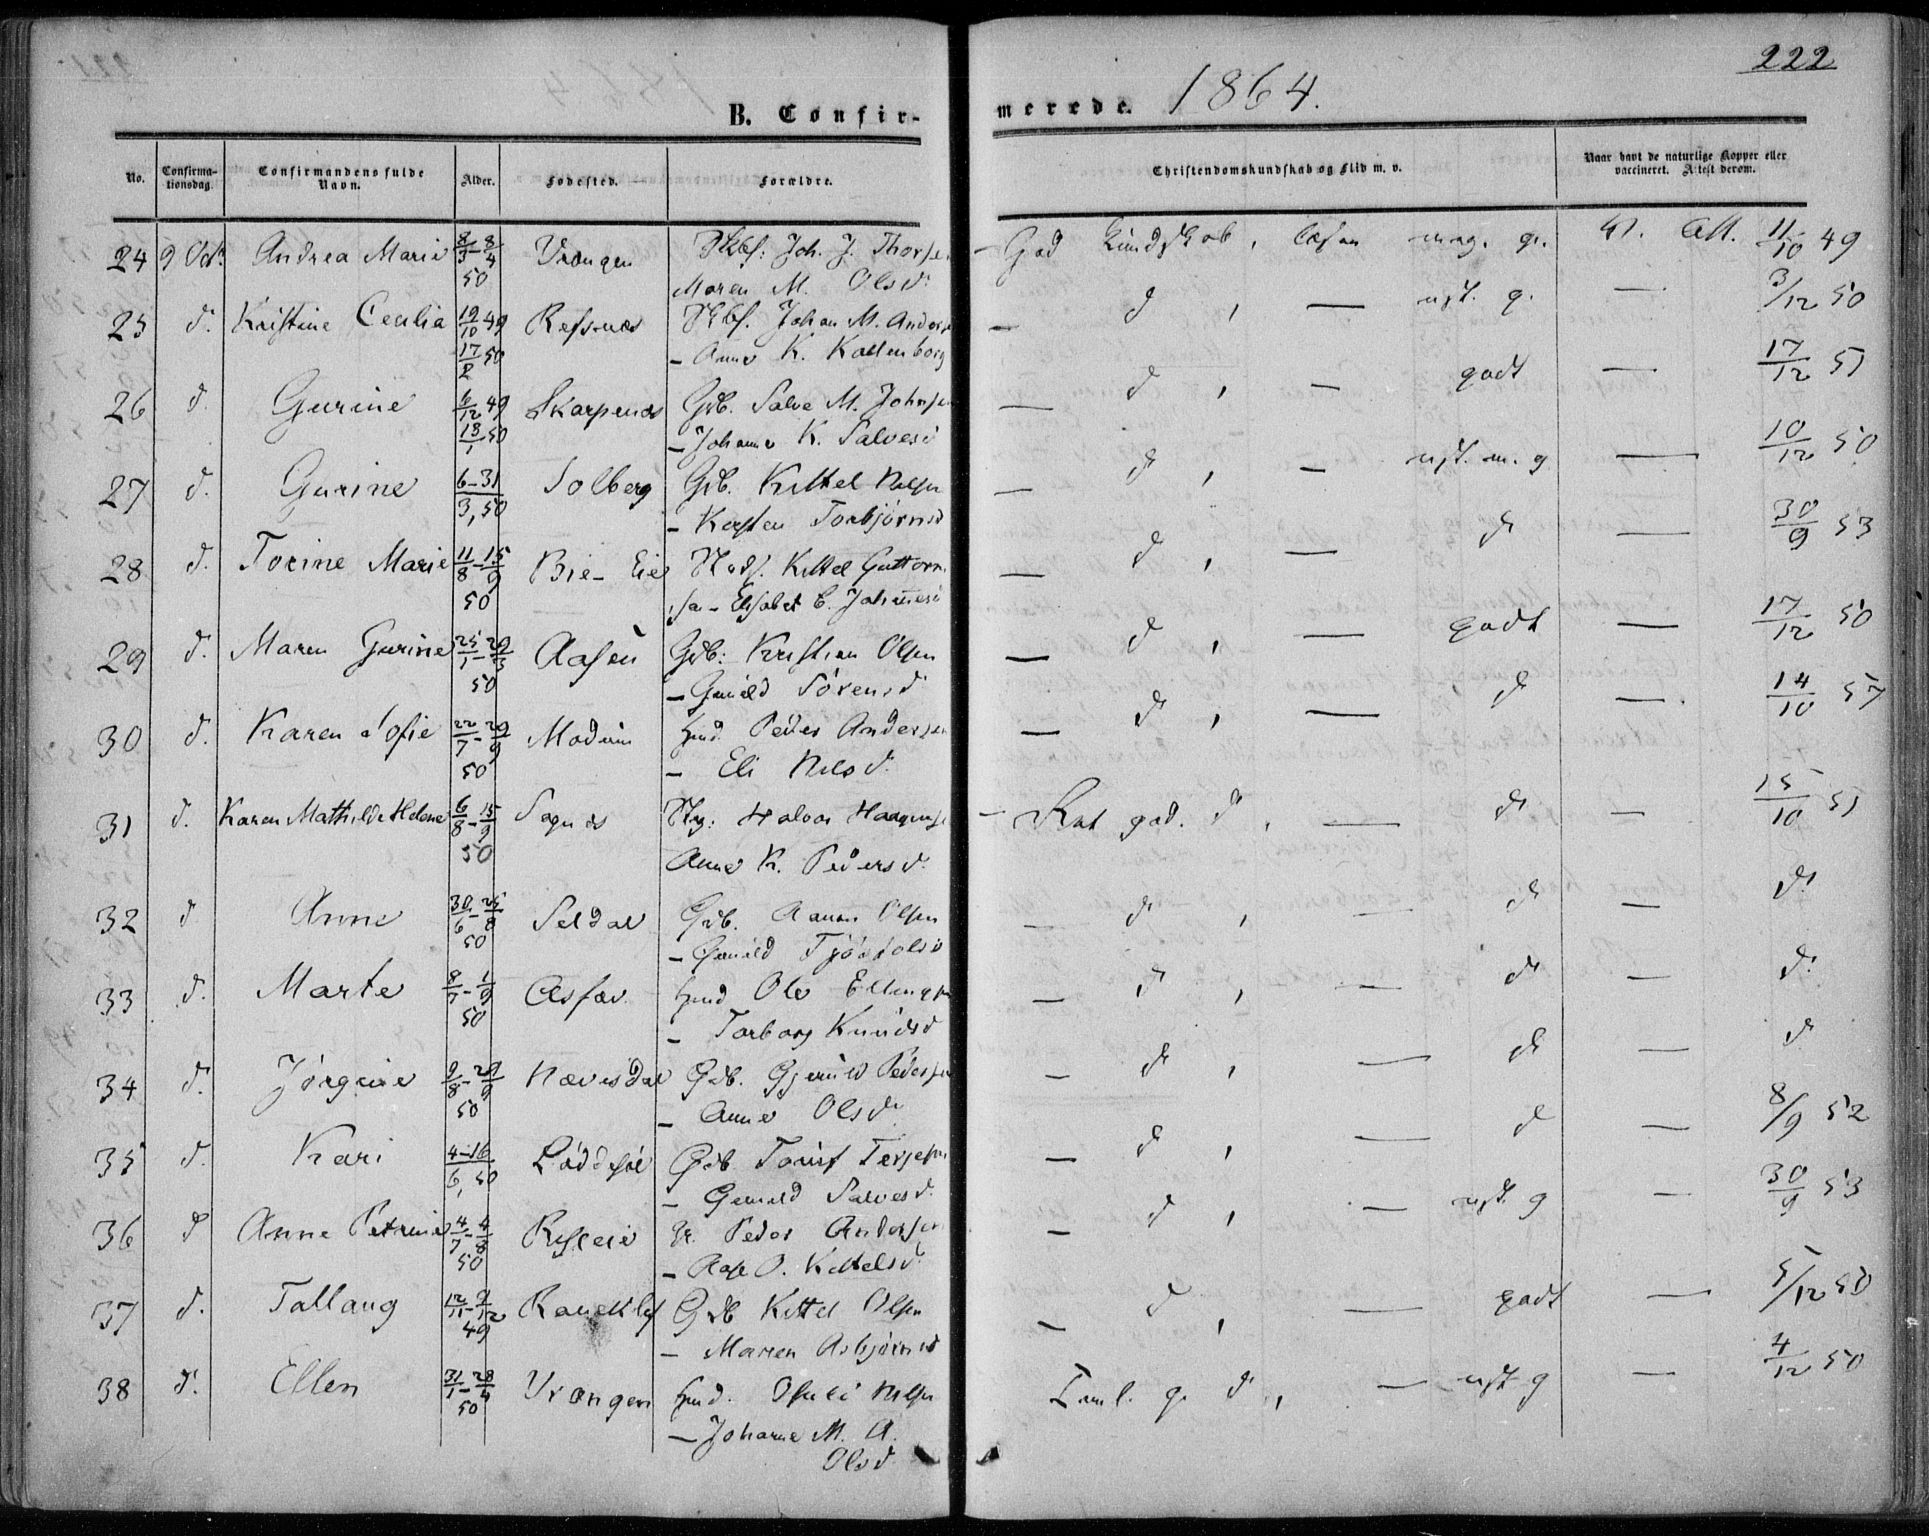 222
B. Confir-
merede. 1864.
No.
Confirmationsdag.
Confirmandens fulde Navn.
Alder.
Fødested.
Forældre.
Christendomskundskab og Flid m. v.
Naar havt de naturlige Kopper eller vaccineret. Attest derom.
24 9 Oct. Andrea Marie 8/3-8/4 50 Vrængen Joh. J. Thorsen
Maren M. Olsd.
God Kundskab, Læsen mag. g. Att. 11/10 49
25 d. Kristine Cecilia 19/10 49 17/2 50 Refsnæs Johan M. Anders
- Anne K. Kallenborg
— d, — nst. g. — 3/12 50
26 d. Gurine 6/12 49 13/1 50 Skarpenæs Gdb. Salve M. Johnsen
- Johanne K. Salvesd
— d, — godt — 17/12 51
27 d. Gurine 6-31 3, 50 Solberg Gdb. Kittel Nelsen
- Kersten Torbjørnsd
— d, — nst. m. g — 10/12 50
28 d. Torine Marie 11/8-15/9 50 Bie-Eie Kittel Guttorm
sen - Elisabet C. Johannesd
— d, — d — 30/9 53
29 d. Maren Gurine 25/1-29/3 50 Aasen Gdb: Kristian Olsen
- Gunild Sörensd
— d, — godt — 17/12 50
30 d. Karen Sofie 22/7-29/9 50 Modum Hmd. Peder Andersen
- Eli Nelsd.
— d, — d — 14/10 57
31 d. Karen Mathilde Helene 6/8-15/9 50 Sognes Halvor Haagensen
Anne K. Pedersd.
- god. d, — d — 15/10 51
32 d Anne 30/6-25/8 50 Seldal Gdb. Aanon Olsen
- Gunild Tjöstolsd
— d, — d — d.
33 d. Marte 8/7-1/9 50 Hmd Ole Ellingsen
- Torborg Knudsd
— d, — d — d.
34 d. Jörgine 9/8-29/9 50 Nævesdal Gdb. Gjeruld Pedersen
- Anne Olsd.
— d, — d — d
35 d. Kari 4-16 6, 50 Löddesöl Gdb Terjesen
- Gunild Salvesd.
— d, — d — 8/9 52
36 d Anne Petrine 4/7-4/8 50 Peder Andersen
- Aase O. Kittelsd.
— d, — nst. g — 30/9 53
37 d. Tallaug 12/11-9/12 49 Ranekléf Gdb Kittel Olsen
- Maren Asbjørnsd
— d, — godt — 5/12 50
38 d. Ellen 31/1-28/4 50 Vrængen Hmd. Nelsen
- Johanne M. A.
Olsd
Teml. g. d, — nst g — 4/12 50